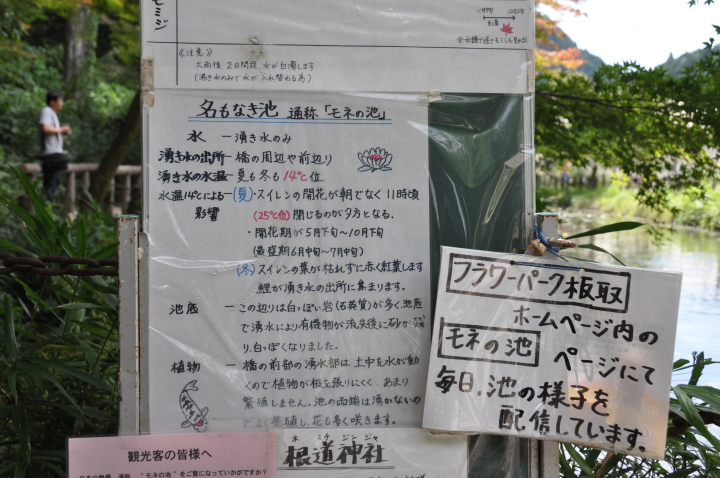 モミジ
11月中旬 12月上旬
紅葉
《注意》
大雨後2日間程、水が白濁します
(湧き水のみで水が入れ替わる為)
名もなき池 通称「モネの池」
水 ー 湧き水のみ
湧き水の出所 ー 橋の周辺や前辺り
湧き水の水温 ー 夏も冬も14℃位
水温14℃による影響 ー (夏)・スイレンの開花が朝でなく11時頃
(25℃位) 閉じるのが夕方となる。
・開花期が5月下旬〜10月下旬
(最盛期6月中旬〜7月中旬)
(冬)スイレンの葉が枯れずに赤く紅葉します
鯉が湧き水の出所に集まります。
池底 ー この辺りは白っぽい岩(石英質)が多く池底
で湧水により有機物が流失後に砂が残
り、白っぽくなりました。
植物 ー 橋の前部の湧水部は土中を水が動
くので植物が根を張りにくく、あまり
繁殖しません。池の両端は湧かないの
でよく繁殖し、花も多く咲きます。
ネミチジンジャ
根道神社
観光客の皆様へ
"モネの池"をご覧になっていかがですか?
フラワーパーク板取
ホームページ内の
モネの池 ページにて
毎日、池の様子を
配信しています。